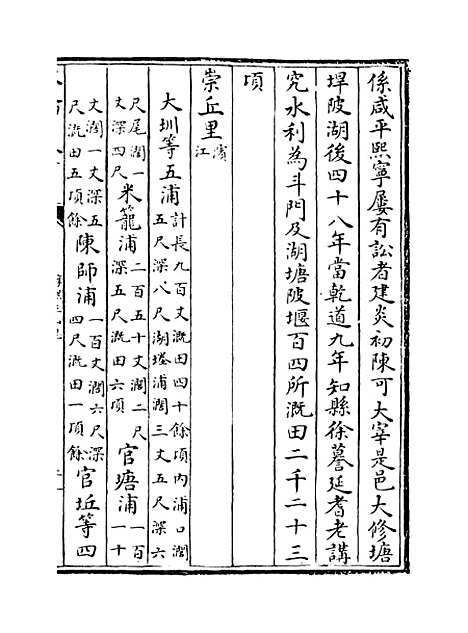 係咸平熙寧屢有訟者建炎初陳可大宰是邑大修塘
埕陂湖後四十八年當乾道九年知縣徐謩延耆老講
究水利為斗門及湖塘陂堰百四所溉田二千二十三
項
崇丘里濱江
大圳等五浦計長九百丈溉田四十餘項内浦口濶五尺深八尺湖墘浦濶三丈五尺深六
尺尾濶一丈深四尺米籠浦二百五十丈濶二尺深五尺溉田六項官塘浦一百一十
丈濶一丈深五尺溉田五項餘陳師浦一百丈濶六尺深四尺溉田一項餘官坵等四